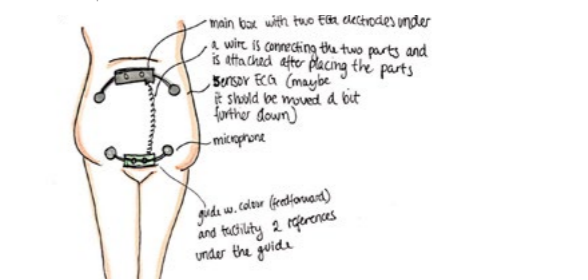 main box with two ECG electrodes under
a wire is connecting the two parts and
is attached after placing the parts
sensor ECG (maybe
it should be moved a bit
further down)
microphone
guide w. colour (feedforward)
and tactility 2 references
under the guide